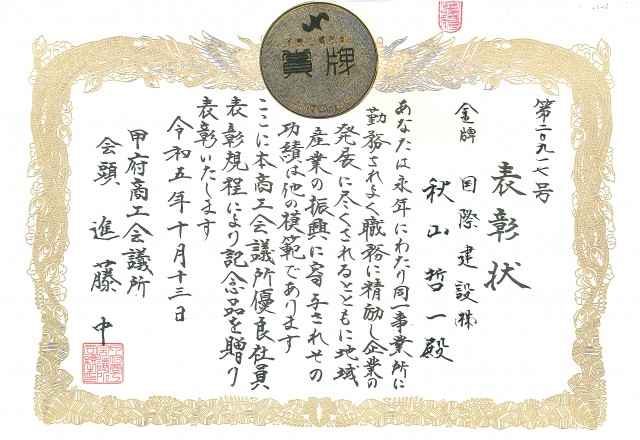 賞牌
第二〇九一七号
表彰状
金牌 国際建設㈱
秋山哲一殿
あなたは永年にわたり同一事業所に
勤務されよく職務に精励し企業の
発展に尽くされるとともに地域
産業の振興に寄与されその
功績は他の模範であります
ここに本商工会議所優良社員
表彰規程により記念品を贈り
表彰いたします
令和五年十月十三日
甲府商工会議所
会頭 進藤中